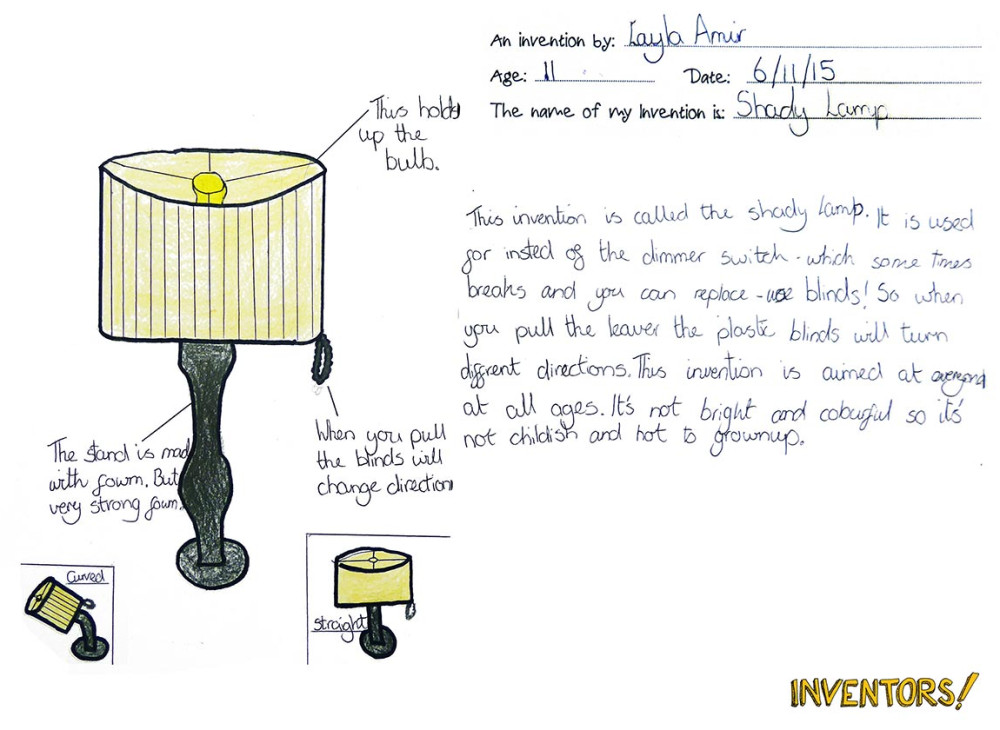 An invention by: Layla Amir
Age: 11 Date: 6/11/15
The name of my Invention is: Shady Lamp
This holds
up the
bulb.
This invention is called the shady lamp. It is used
for insted of the dimmer switch - which some times
breaks and you can replace - use blinds! So when
you pull the leaver the plastic blinds will turn
diffrent directions. This invention is aimed at everyone
at all ages. It's not bright and colourful so it's
not childish and not to grownup.
When you pull
the blinds will
change direction
The stand is mad
with fowm. But
very strong fowm.
Curved
straight
INVENTORS!